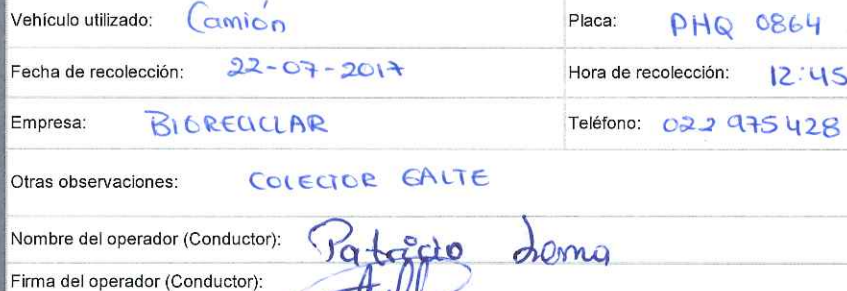 Vehículo utilizado: Camión Placa: PHQ 0864
Fecha de recolección: 22-07-2017 Hora de recolección: 12:45
Empresa: BIORECICLAR Teléfono: 022 975 428
Otras observaciones: COLECTOR GALTE
Nombre del operador (Conductor): Patricio Loma
Firma del operador (Conductor):